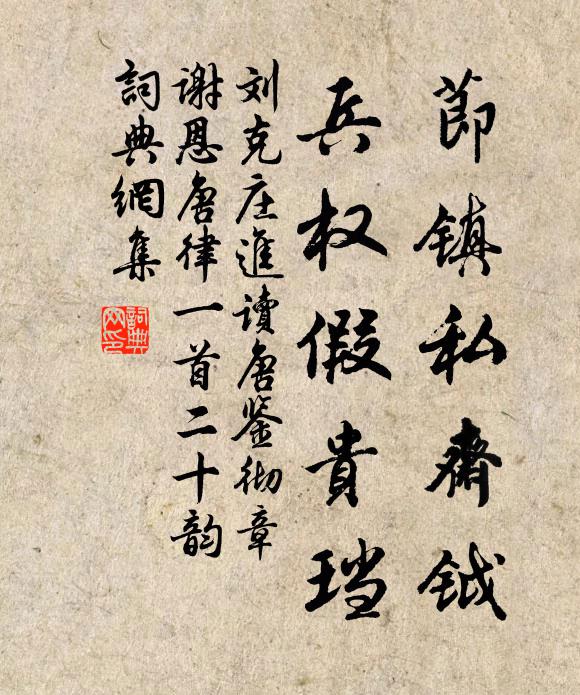 莭镇私齋钺
兵权假貴珰
刘克庄進讀唐鉴彻章
谢恩唐律一首二十韵
詞典網集
詞典网印